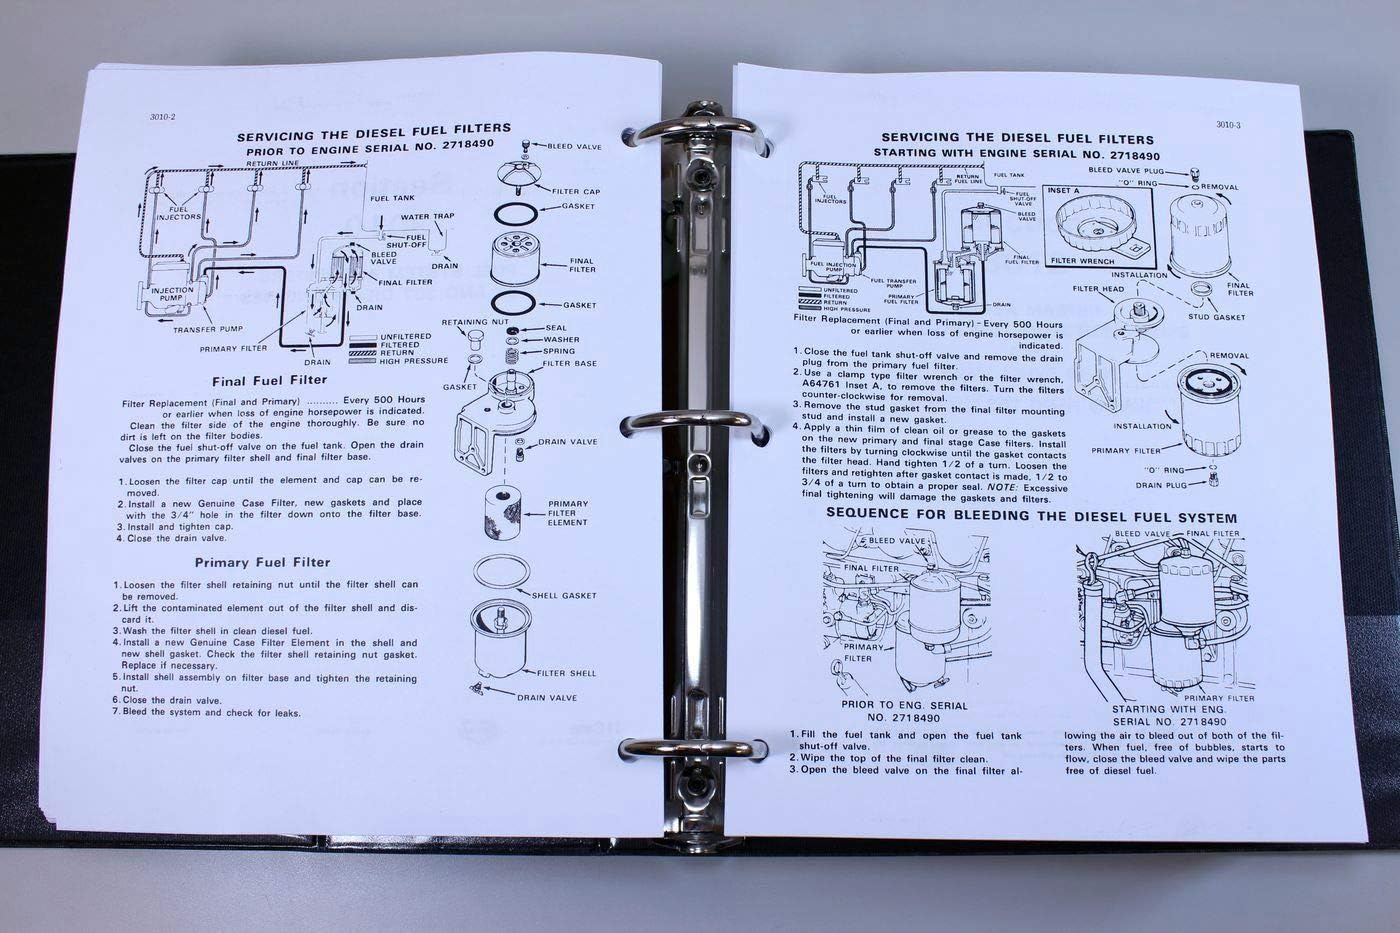 3010-2
SERVICING THE DIESEL FUEL FILTERS
PRIOR TO ENGINE SERIAL NO. 2718490
RETURN LINE
FUEL
INJECTORS
FUEL TANK
WATER TRAP
FUEL
SHUT-OFF
BLEED
VALVE
DRAIN
FINAL FILTER
INJECTION
PUMP
DRAIN
TRANSFER PUMP
PRIMARY FILTER
DRAIN
UNFILTERED
FILTERED
RETURN
HIGH PRESSURE
BLEED VALVE
FILTER CAP
GASKET
FINAL
FILTER
GASKET
RETAINING NUT
SEAL
WASHER
SPRING
FILTER BASE
GASKET
DRAIN VALVE
PRIMARY
FILTER
ELEMENT
SHELL GASKET
FILTER SHELL
DRAIN VALVE
Final Fuel Filter
Filter Replacement (Final and Primary) .......... Every 500 Hours
or earlier when loss of engine horsepower is indicated.
Clean the filter side of the engine thoroughly. Be sure no
dirt is left on the filter bodies.
Close the fuel shut-off valve on the fuel tank. Open the drain
valves on the primary filter shell and final filter base.
1. Loosen the filter cap until the element and cap can be re-
moved.
2. Install a new Genuine Case Filter, new gaskets and place
with the 3/4" hole in the filter down onto the filter base.
3. Install and tighten cap.
4. Close the drain valve.
Primary Fuel Filter
1. Loosen the filter shell retaining nut until the filter shell can
be removed.
2. Lift the contaminated element out of the filter shell and dis-
card it.
3. Wash the filter shell in clean diesel fuel.
4. Install a new Genuine Case Filter Element in the shell and
new shell gasket. Check the filter shell retaining nut gasket.
Replace if necessary.
5. Install shell assembly on filter base and tighten the retaining
nut.
6. Close the drain valve.
7. Bleed the system and check for leaks.
3010-3
SERVICING THE DIESEL FUEL FILTERS
STARTING WITH ENGINE SERIAL NO. 2718490
FUEL
INJECTORS
RETURN
FUEL LINE
FUEL TANK
FUEL
SHUT-OFF
VALVE
BLEED
VALVE
FINAL
FUEL FILTER
FUEL INJECTION
PUMP
FUEL TRANSFER
PUMP
PRIMARY
FUEL FILTER
DRAIN
UNFILTERED
FILTERED
RETURN
HIGH PRESSURE
INSET A
FILTER WRENCH
BLEED VALVE PLUG
"O" RING
REMOVAL
INSTALLATION
FILTER HEAD
FINAL
FILTER
STUD GASKET
REMOVAL
INSTALLATION
PRIMARY FILTER
"O" RING
DRAIN PLUG
Filter Replacement (Final and Primary) – Every 500 Hours
or earlier when loss of engine horsepower is
indicated.
1. Close the fuel tank shut-off valve and remove the drain
plug from the primary fuel filter.
2. Use a clamp type filter wrench or the filter wrench,
A64761 Inset A, to remove the filters. Turn the filters
counter-clockwise for removal.
3. Remove the stud gasket from the final filter mounting
stud and install a new gasket.
4. Apply a thin film of clean oil or grease to the gaskets
on the new primary and final stage Case filters. Install
the filters by turning clockwise until the gasket contacts
the filter head. Hand tighten 1/2 of a turn. Loosen the
filters and retighten after gasket contact is made, 1/2 to
3/4 of a turn to obtain a proper seal. NOTE: Excessive
final tightening will damage the gaskets and filters.
SEQUENCE FOR BLEEDING THE DIESEL FUEL SYSTEM
BLEED VALVE
FINAL FILTER
PRIMARY
FILTER
PRIOR TO ENG. SERIAL
NO. 2718490
BLEED VALVE
FINAL FILTER
PRIMARY FILTER
STARTING WITH ENG.
SERIAL NO. 2718490
1. Fill the fuel tank and open the fuel tank
shut-off valve.
2. Wipe the top of the final filter clean.
3. Open the bleed valve on the final filter al-
lowing the air to bleed out of both of the fil-
ters. When fuel, free of bubbles, starts to
flow, close the bleed valve and wipe the parts
free of diesel fuel.